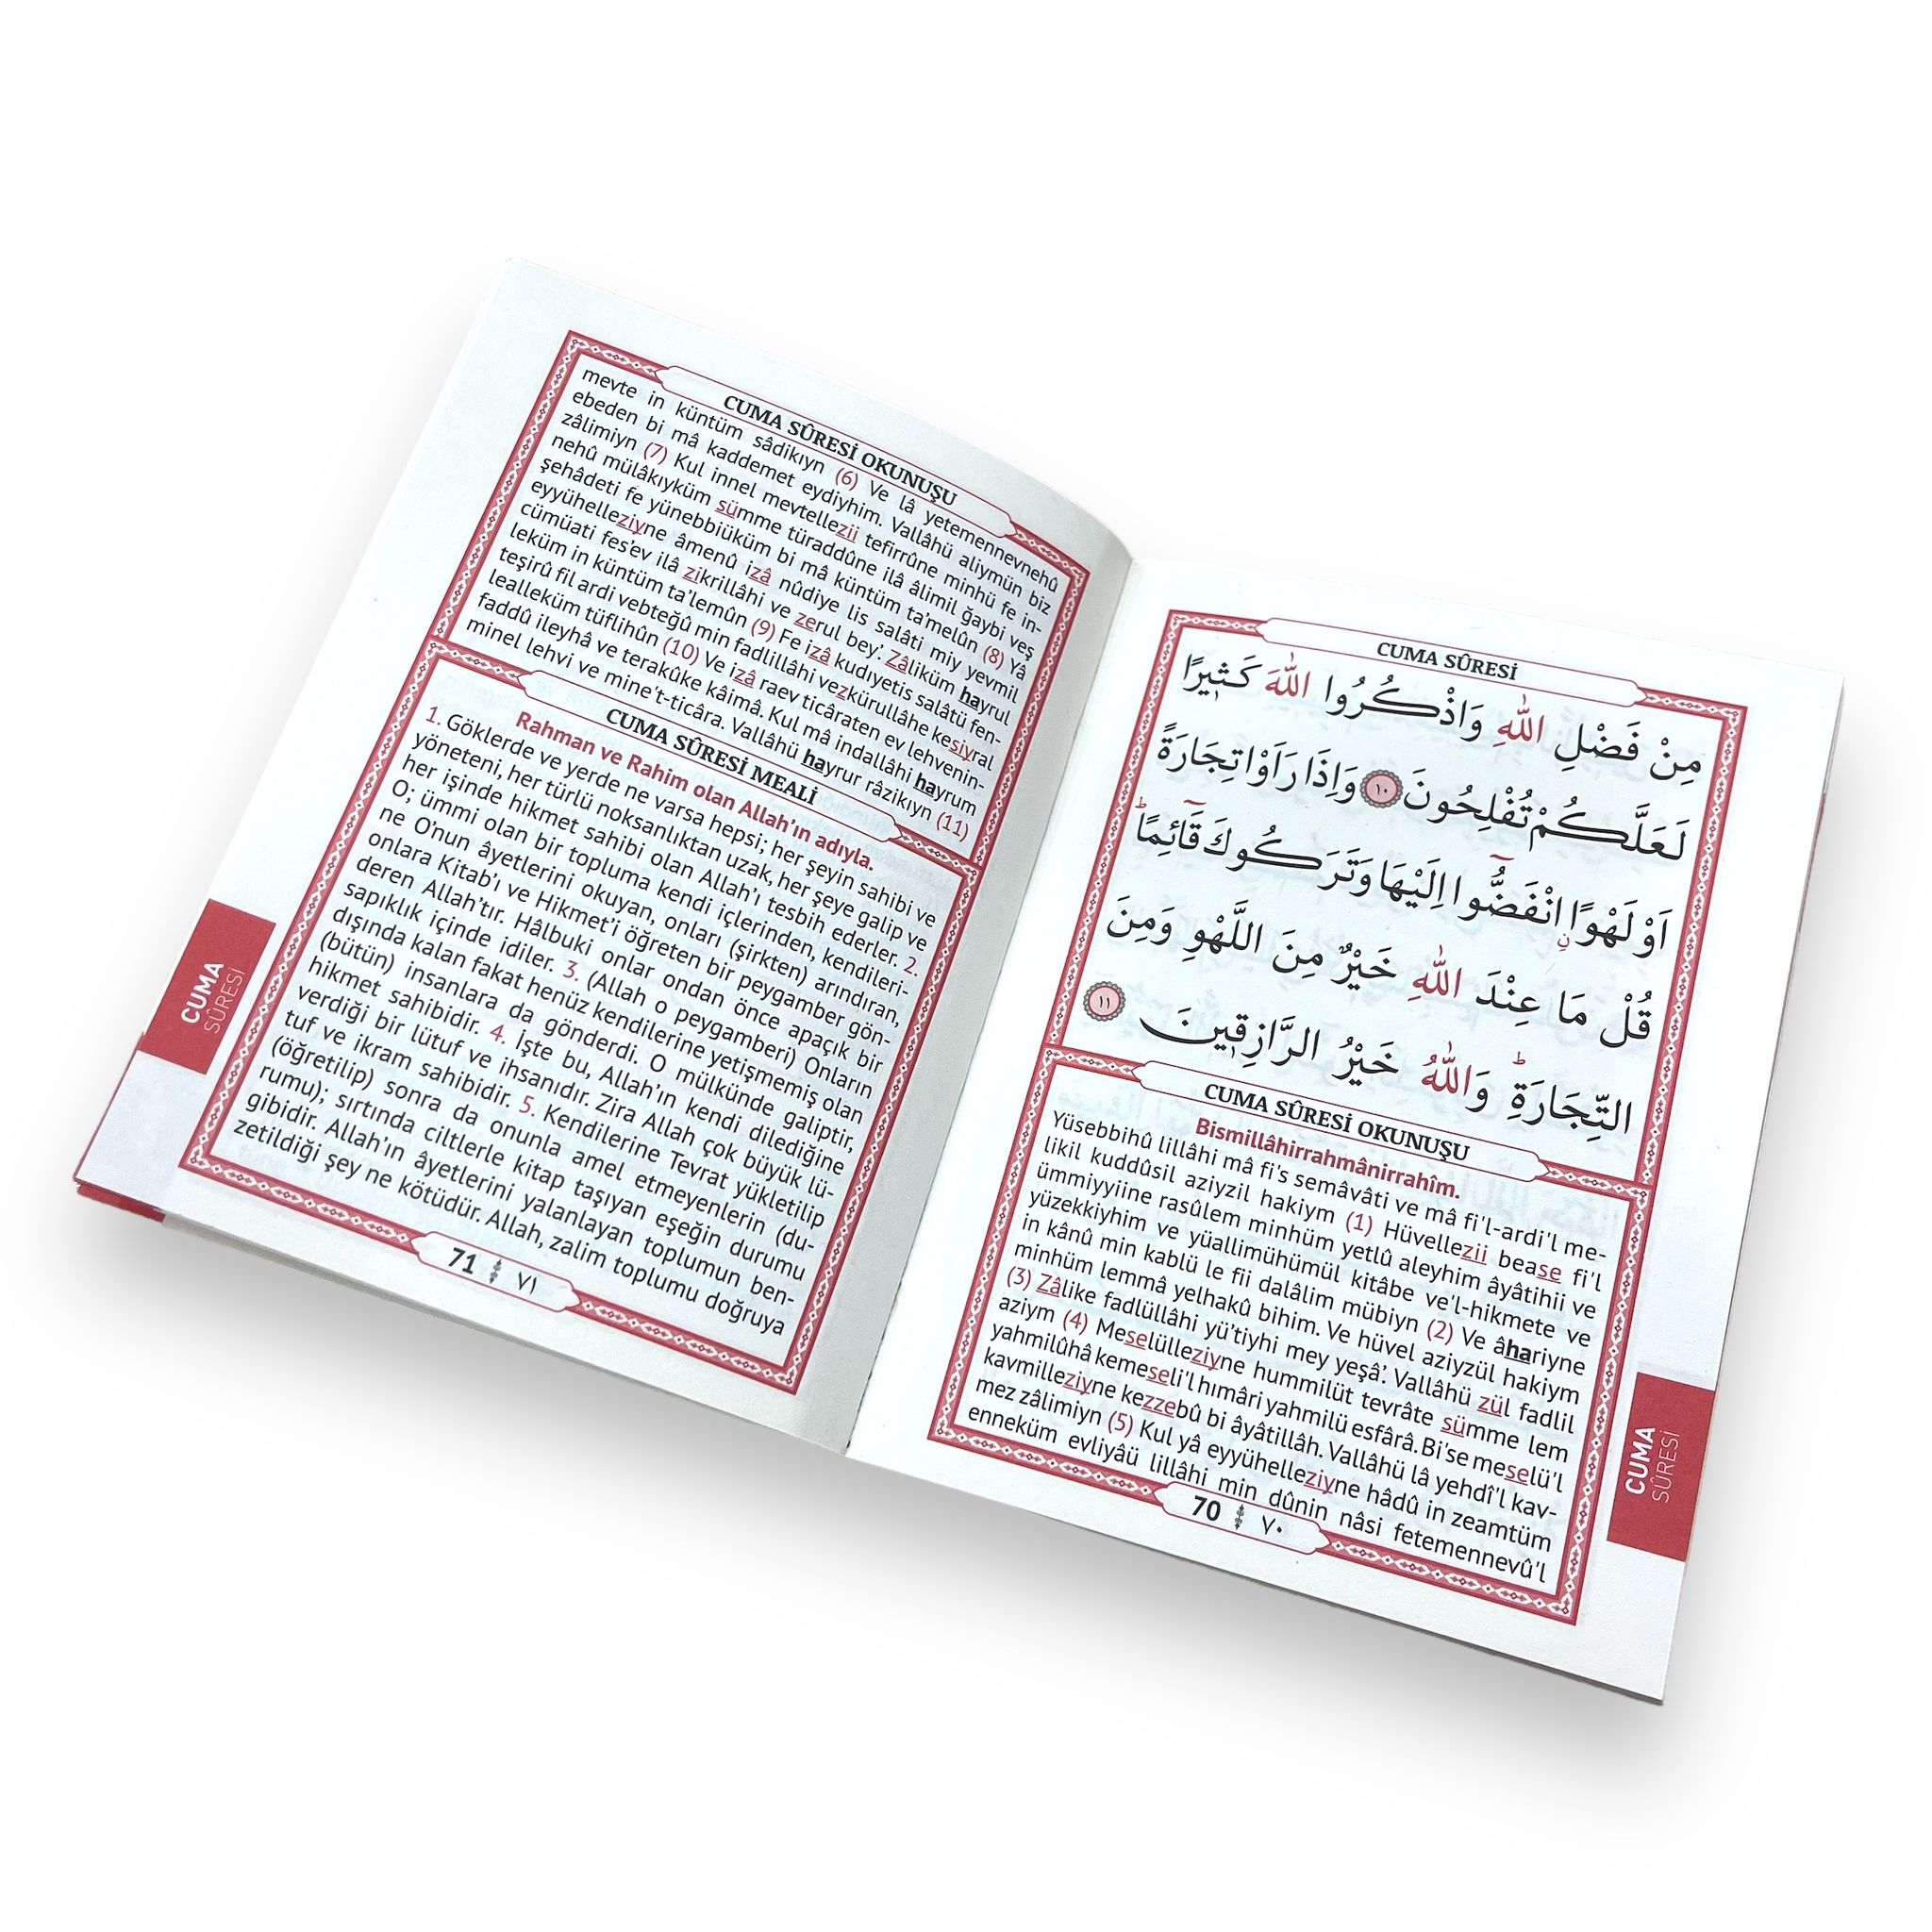 CUMA SÛRESİ
مِنْ فَضْلِ اللّٰهِ وَاذْكُرُوا اللّٰهَ كَث۪يرًا
لَعَلَّكُمْ تُفْلِحُونَ ﴿١٠﴾ وَاِذَا رَاَوْا تِجَارَةً
اَوْ لَهْوًاۨ انْفَضُّٓوا اِلَيْهَا وَتَرَكُوكَ قَٓائِمًاۜ
قُلْ مَا عِنْدَ اللّٰهِ خَيْرٌ مِنَ اللَّهْوِ وَمِنَ
التِّجَارَةِۜ وَاللّٰهُ خَيْرُ الرَّازِق۪ينَ ﴿١١﴾
CUMA SÛRESİ OKUNUŞU
Bismillâhirrahmânirrahîm.
Yüsebbihû lillâhi mâ fi's semâvâti ve mâ fi'l-ardi'l me-
likil kuddûsil aziyzil hakiym (1) Hüvellezii bease fi'l
ümmiyyiine rasûlem minhüm yetlû aleyhim âyâtihii ve
yüzekkiyhim ve yüallimühümül kitâbe ve'l-hikmete ve
in kânû min kablü le fii dalâlim mübiyn (2) Ve âhariyne
minhüm lemmâ yelhakû bihim. Ve hüvel aziyzül hakiym
(3) Zâlike fadlüllâhi yü'tiyhi mey yeşâ'. Vallâhü zül fadlil
aziym (4) Meselülleziyne hummilüt tevrâte sümme lem
yahmilûhâ kemeseli'l hımâri yahmilü esfârâ. Bi'se meselü'l
kavmilleziyne kezzebû bi âyâtillâh. Vallâhü lâ yehdî'l kav-
mez zâlimiyn (5) Kul yâ eyyühelleziyne hâdû in zeamtüm
enneküm evliyâü lillâhi min dûnin nâsi fetemennevû'l
70 ٧٠
CUMA
SÛRESİ
CUMA SÛRESİ OKUNUŞU
mevte in küntüm sâdikıyn (6) Ve lâ yetemennevnehû
ebeden bi mâ kaddemet eydiyhim. Vallâhü aliymün biz
zâlimiyn (7) Kul innel mevtellezii tefirrûne minhü fe in-
nehû mülâkıyküm sümme türaddûne ilâ âlimil ğaybi veş
şehâdeti fe yünebbiüküm bi mâ küntüm ta'melûn (8) Yâ
eyyühelleziyne âmenû izâ nûdiye lis salâti miy yevmil
cümüati fes'ev ilâ zikrillâhi ve zerul bey'. Zâliküm hayrul
leküm in küntüm ta'lemûn (9) Fe izâ kudıyetis salâtü fen-
teşirû fil ardi vebteğû min fadlillâhi vezkürullâhe kesiyral
lealleküm tüflihûn (10) Ve izâ raev ticâraten ev lehvenin-
faddû ileyhâ ve terakûke kâimâ. Kul mâ indallâhi hayrum
minel lehvi ve mine't-ticâra. Vallâhü hayrur râzikıyn (11)
CUMA SÛRESİ MEALİ
Rahman ve Rahim olan Allah'ın adıyla.
1. Göklerde ve yerde ne varsa hepsi; her şeyin sahibi ve
yöneteni, her türlü noksanlıktan uzak, her şeye galip ve
her işinde hikmet sahibi olan Allah'ı tesbih ederler. 2.
O; ümmi olan bir topluma kendi içlerinden, kendileri-
ne O'nun âyetlerini okuyan, onları (şirkten) arındıran,
onlara Kitab'ı ve Hikmet'i öğreten bir peygamber gön-
deren Allah'tır. Hâlbuki onlar ondan önce apaçık bir
sapıklık içinde idiler. 3. (Allah o peygamberi) Onların
dışında kalan fakat henüz kendilerine yetişmemiş olan
(bütün) insanlara da gönderdi. O mülkünde galiptir,
hikmet sahibidir. 4. İşte bu, Allah'ın kendi dilediğine
verdiği bir lütuf ve ihsanıdır. Zira Allah çok büyük lü-
tuf ve ikram sahibidir. 5. Kendilerine Tevrat yükletilip
(öğretilip) sonra da onunla amel etmeyenlerin (du-
rumu); sırtında ciltlerle kitap taşıyan eşeğin durumu
gibidir. Allah'ın âyetlerini yalanlayan toplumun ben-
zetildiği şey ne kötüdür. Allah, zalim toplumu doğruya
71 ٧١
CUMA
SÛRESİ